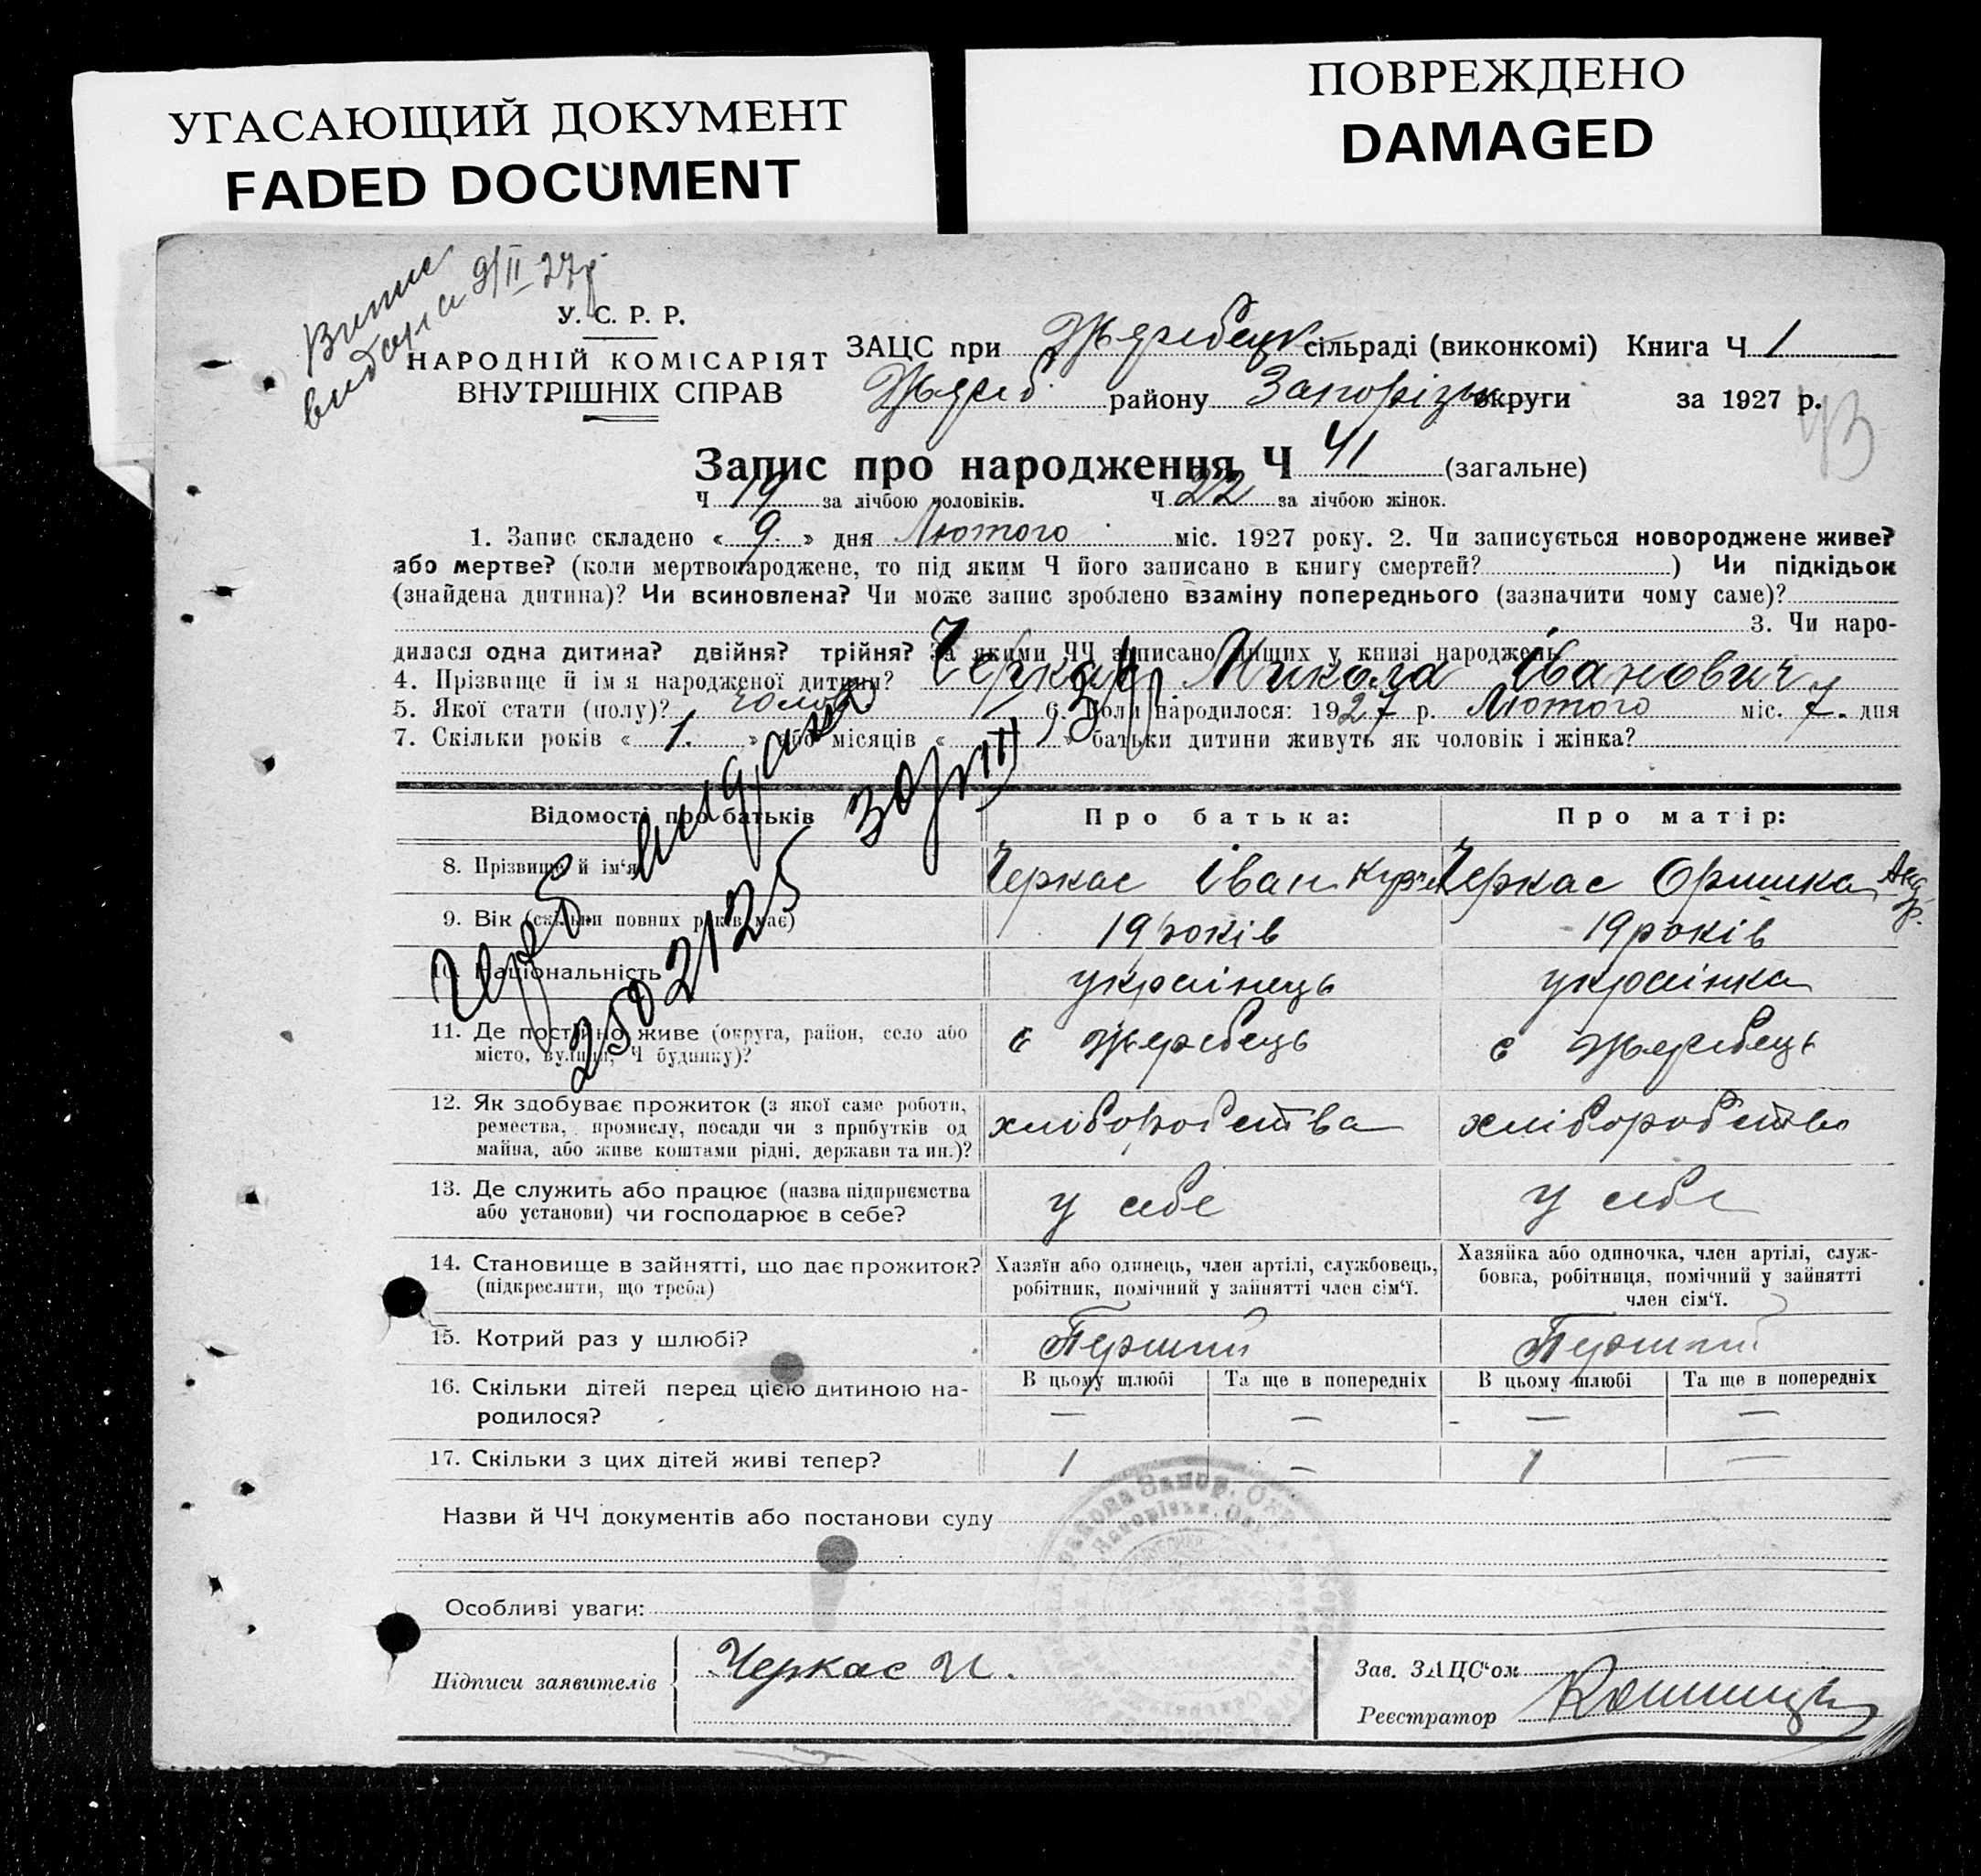 УГАСАЮЩИЙ ДОКУМЕНТ
FADED DOCUMENT
ПОВРЕЖДЕНО
DAMAGED
Випис
видала 9/II-27р.
У. С. Р. Р.
НАРОДНІЙ КОМІСАРІЯТ
ВНУТРІШНІХ СПРАВ
ЗАЦС при Жеребецк сільраді (виконкомі) Книга Ч 1
Жереб району Запорізьк округи за 1927 р.
Запис про народження Ч 41 (загальне)
Ч 19 за лічбою чоловіків. Ч 22 за лічбою жінок.
1. Запис складено « 9 » дня Лютого міс. 1927 року. 2. Чи записується новороджене живе?
або мертве? (коли мертвонароджене, то під яким Ч його записано в книгу смертей? ) Чи підкідьок
(знайдена дитина)? Чи всиновлена? Чи може запис зроблено взаміну попереднього (зазначити чому саме)?
3. Чи наро-
дилася одна дитина? двійня? трійня? За якими ЧЧ записано инших у книзі народжень
4. Прізвище й ім'я народженої дитини? Черкас Микола Іванович
5. Якої стати (полу)? чолов 6. Коли народилося: 1927 р. Лютого міс. 7. дня
7. Скільки років « 1. » або місяців « » батьки дитини живуть як чоловік і жінка?
Відомості про батьків
Про батька:
Про матір:
8. Прізвище й ім'я
Черкас Іван
Черкас Оришка Анд
9. Вік (скільки повних років має)
19 років
19 років
10. Національність
українець
українка
11. Де постійно живе (округа, район, село або
місто, вулиця, Ч будинку)?
с Жеребець
с Жеребець
12. Як здобуває прожиток (з якої саме роботи,
ремества, промислу, посади чи з прибутків од
майна, або живе коштами рідні, держави та ин.)?
хліборобства
хліборобство
13. Де служить або працює (назва підприємства
або установи) чи господарює в себе?
у себе
у себе
14. Становище в зайнятті, що дає прожиток?
(підкреслити, що треба)
Хазяїн або одинець, член артілі, службовець,
робітник, помічний у зайнятті член сім'ї.
Хазяйка або одиночка, член артілі, служ-
бовка, робітниця, помічний у зайнятті
член сім'ї.
15. Котрий раз у шлюбі?
Перший
Перший
16. Скільки дітей перед цією дитиною на-
родилося?
В цьому шлюбі
Та ще в попередніх
В цьому шлюбі
Та ще в попередніх
— — — —
17. Скільки з цих дітей живі тепер?
1 — 1 —
Назви й ЧЧ документів або постанови суду
Особливі уваги:
Підписи заявителів
Черкас И.
Зав. ЗАЦС'ом
Реєстратор